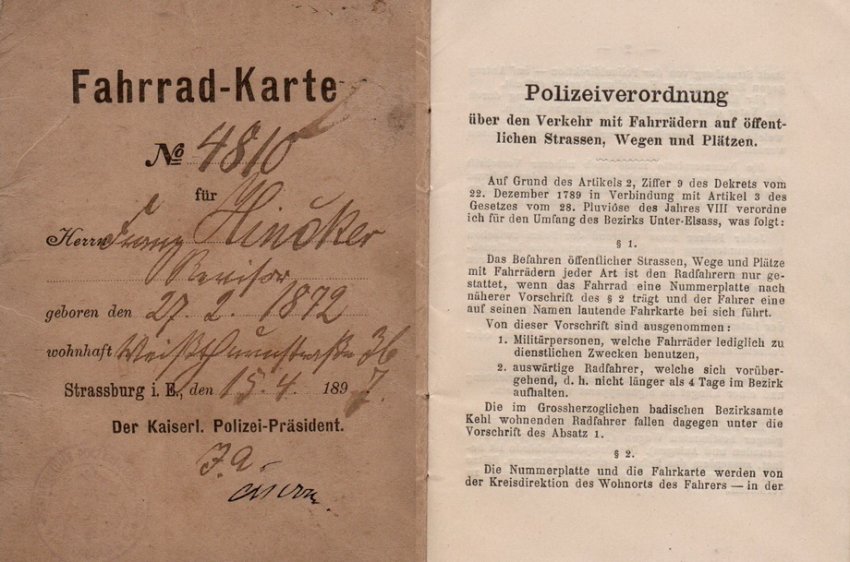 Fahrrad-Karte
No 4810
für
Herrn Franz Hincker
Revisor
geboren den 27. 2. 1872
wohnhaft Weißthurmstraße 36
Strassburg i. E., den 15. 4. 1897.
Der Kaiserl. Polizei-Präsident.
J. A.
Polizeiverordnung
über den Verkehr mit Fahrrädern auf öffent-
lichen Strassen, Wegen und Plätzen.
Auf Grund des Artikels 2, Ziffer 9 des Dekrets vom
22. Dezember 1789 in Verbindung mit Artikel 3 des
Gesetzes vom 28. Pluviôse des Jahres VIII verordne
ich für den Umfang des Bezirks Unter-Elsass, was folgt:
§ 1.
Das Befahren öffentlicher Strassen, Wege und Plätze
mit Fahrrädern jeder Art ist den Radfahrern nur ge-
stattet, wenn das Fahrrad eine Nummerplatte nach
näherer Vorschrift des § 2 trägt und der Fahrer eine
auf seinen Namen lautende Fahrkarte bei sich führt.
Von dieser Vorschrift sind ausgenommen:
1. Militärpersonen, welche Fahrräder lediglich zu
dienstlichen Zwecken benutzen,
2. auswärtige Radfahrer, welche sich vorüber-
gehend, d. h. nicht länger als 4 Tage im Bezirk
aufhalten.
Die im Grossherzoglichen badischen Bezirksamte
Kehl wohnenden Radfahrer fallen dagegen unter die
Vorschrift des Absatz 1.
§ 2.
Die Nummerplatte und die Fahrkarte werden von
der Kreisdirektion des Wohnorts des Fahrers — in der